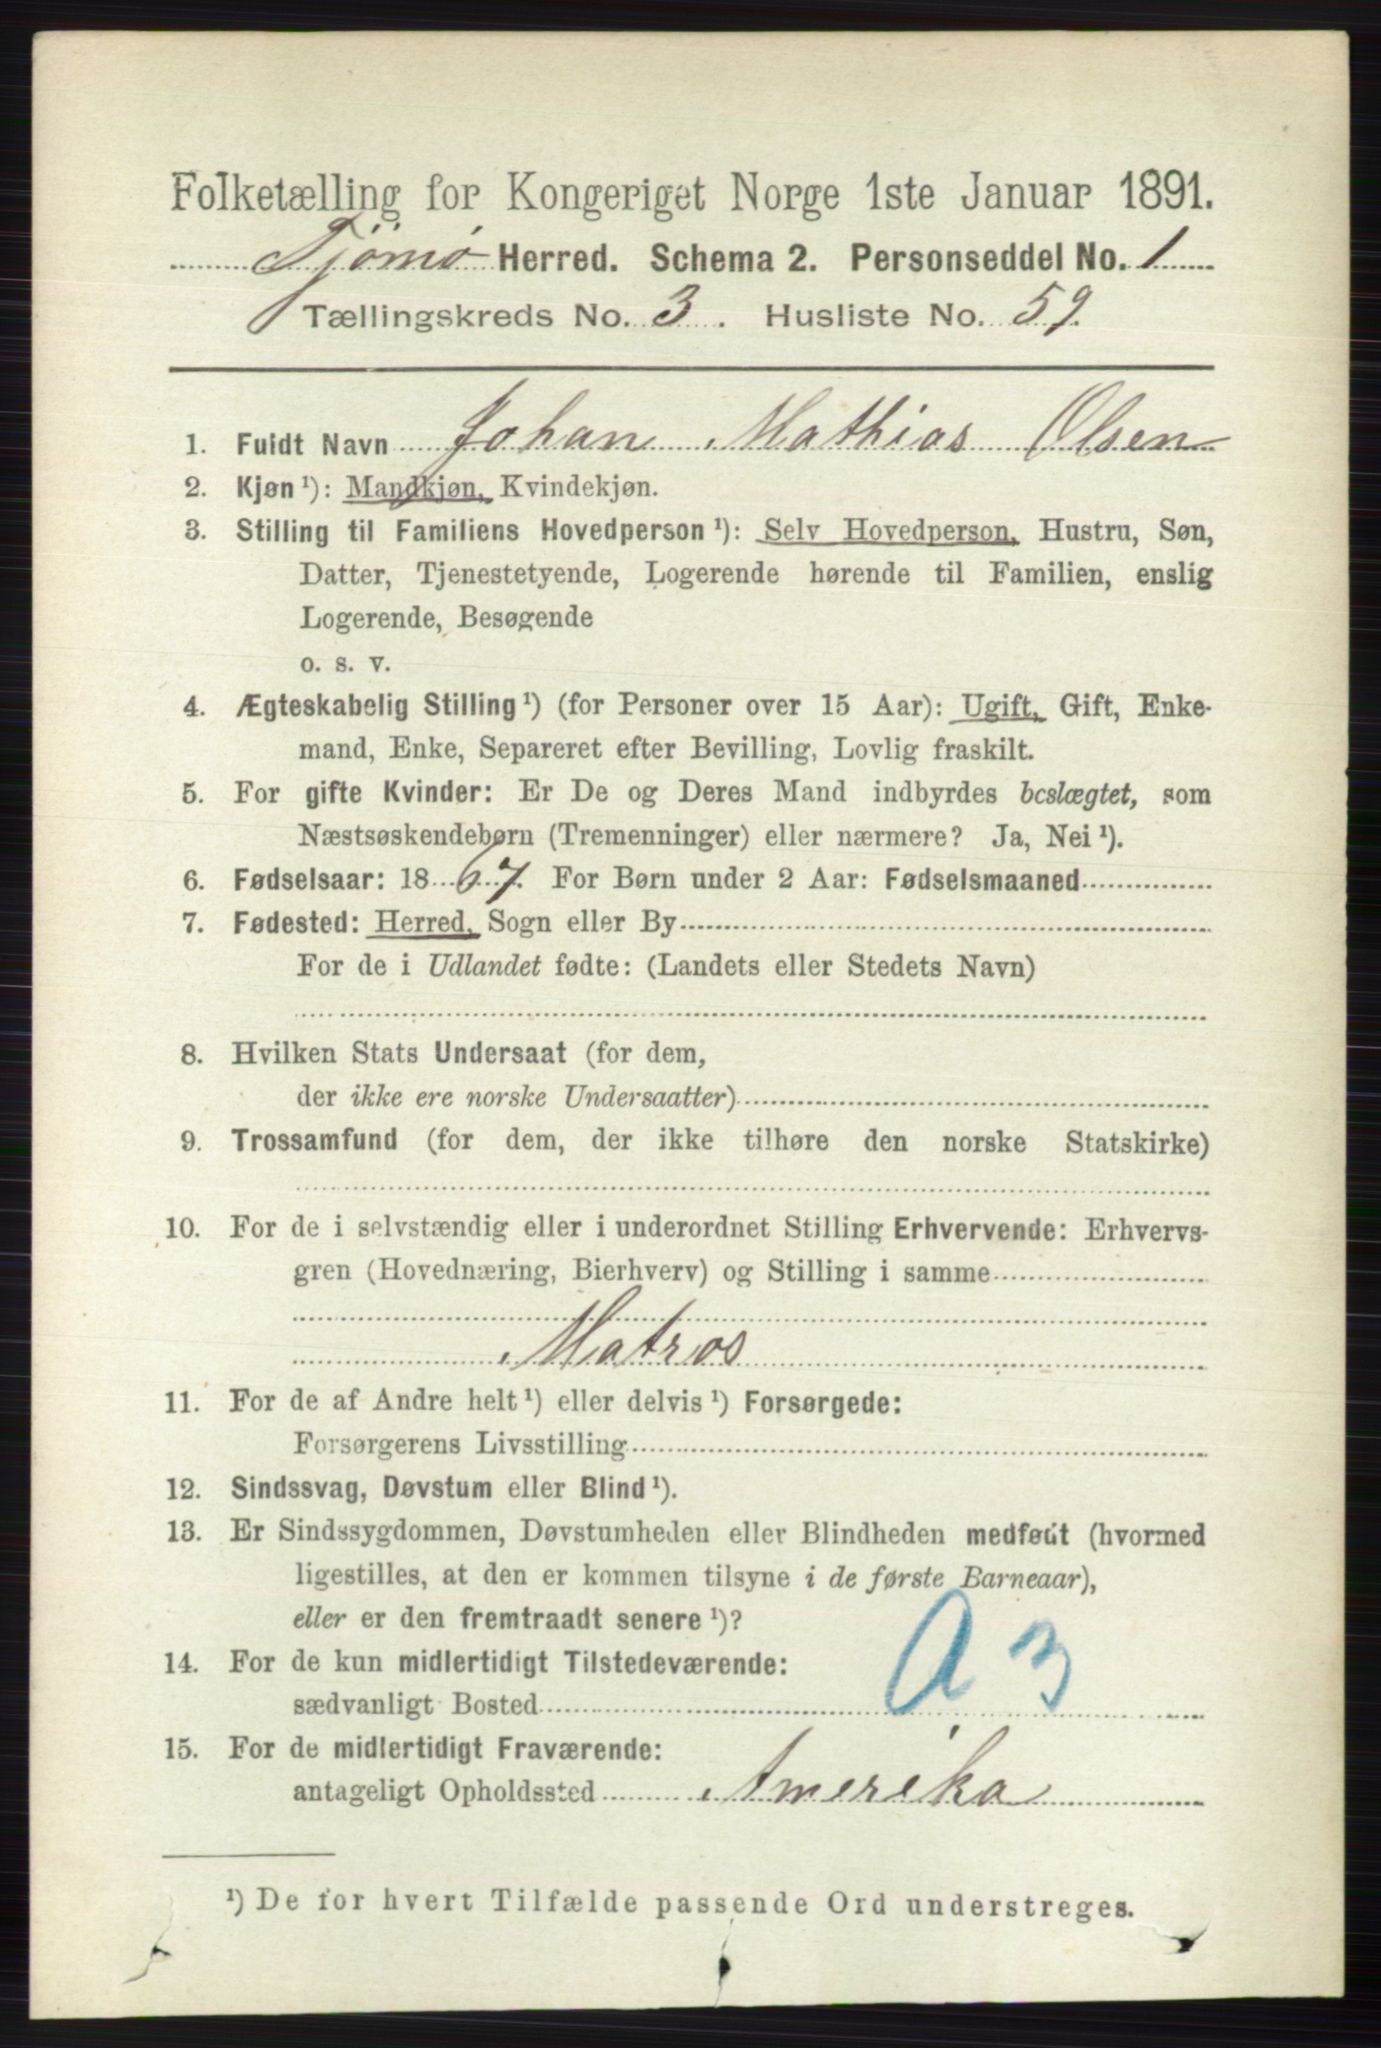 Folketælling for Kongeriget Norge 1ste Januar 1891.
Tjømø Herred. Schema 2. Personseddel No. 1
Tællingskreds No. 3. Husliste No. 59.
1. Fuldt Navn Johan Mathias Olsen
2. Kjøn¹): Mandkjøn, Kvindekjøn.
3. Stilling til Familiens Hovedperson¹): Selv Hovedperson, Hustru, Søn,
Datter, Tjenestetyende, Logerende hørende til Familien, enslig
Logerende, Besøgende
o. s. v.
4. Ægteskabelig Stilling¹) (for Personer over 15 Aar): Ugift, Gift, Enke-
mand, Enke, Separeret efter Bevilling, Lovlig fraskilt.
5. For gifte Kvinder: Er De og Deres Mand indbyrdes beslægtet, som
Næstsøskendebørn (Tremenninger) eller nærmere? Ja, Nei¹).
6. Fødselsaar: 1867. For Børn under 2 Aar: Fødselsmaaned
7. Fødested: Herred, Sogn eller By
For de i Udlandet fødte: (Landets eller Stedets Navn)
8. Hvilken Stats Undersaat (for dem,
der ikke ere norske Undersaatter)
9. Trossamfund (for dem, der ikke tilhøre den norske Statskirke)
10. For de i selvstændig eller i underordnet Stilling Erhvervende: Erhvervs-
gren (Hovednæring, Bierhverv) og Stilling i samme
Matros
11. For de af Andre helt¹) eller delvis¹) Forsørgede:
Forsørgerens Livsstilling
12. Sindssvag, Døvstum eller Blind¹).
13. Er Sindssygdommen, Døvstumheden eller Blindheden medfødt (hvormed
ligestilles, at den er kommen tilsyne i de første Barneaar),
eller er den fremtraadt senere¹)?
A 3
14. For de kun midlertidigt Tilstedeværende:
sædvanligt Bosted
15. For de midlertidigt Fraværende:
antageligt Opholdssted Amerika
¹) De for hvert Tilfælde passende Ord understreges.